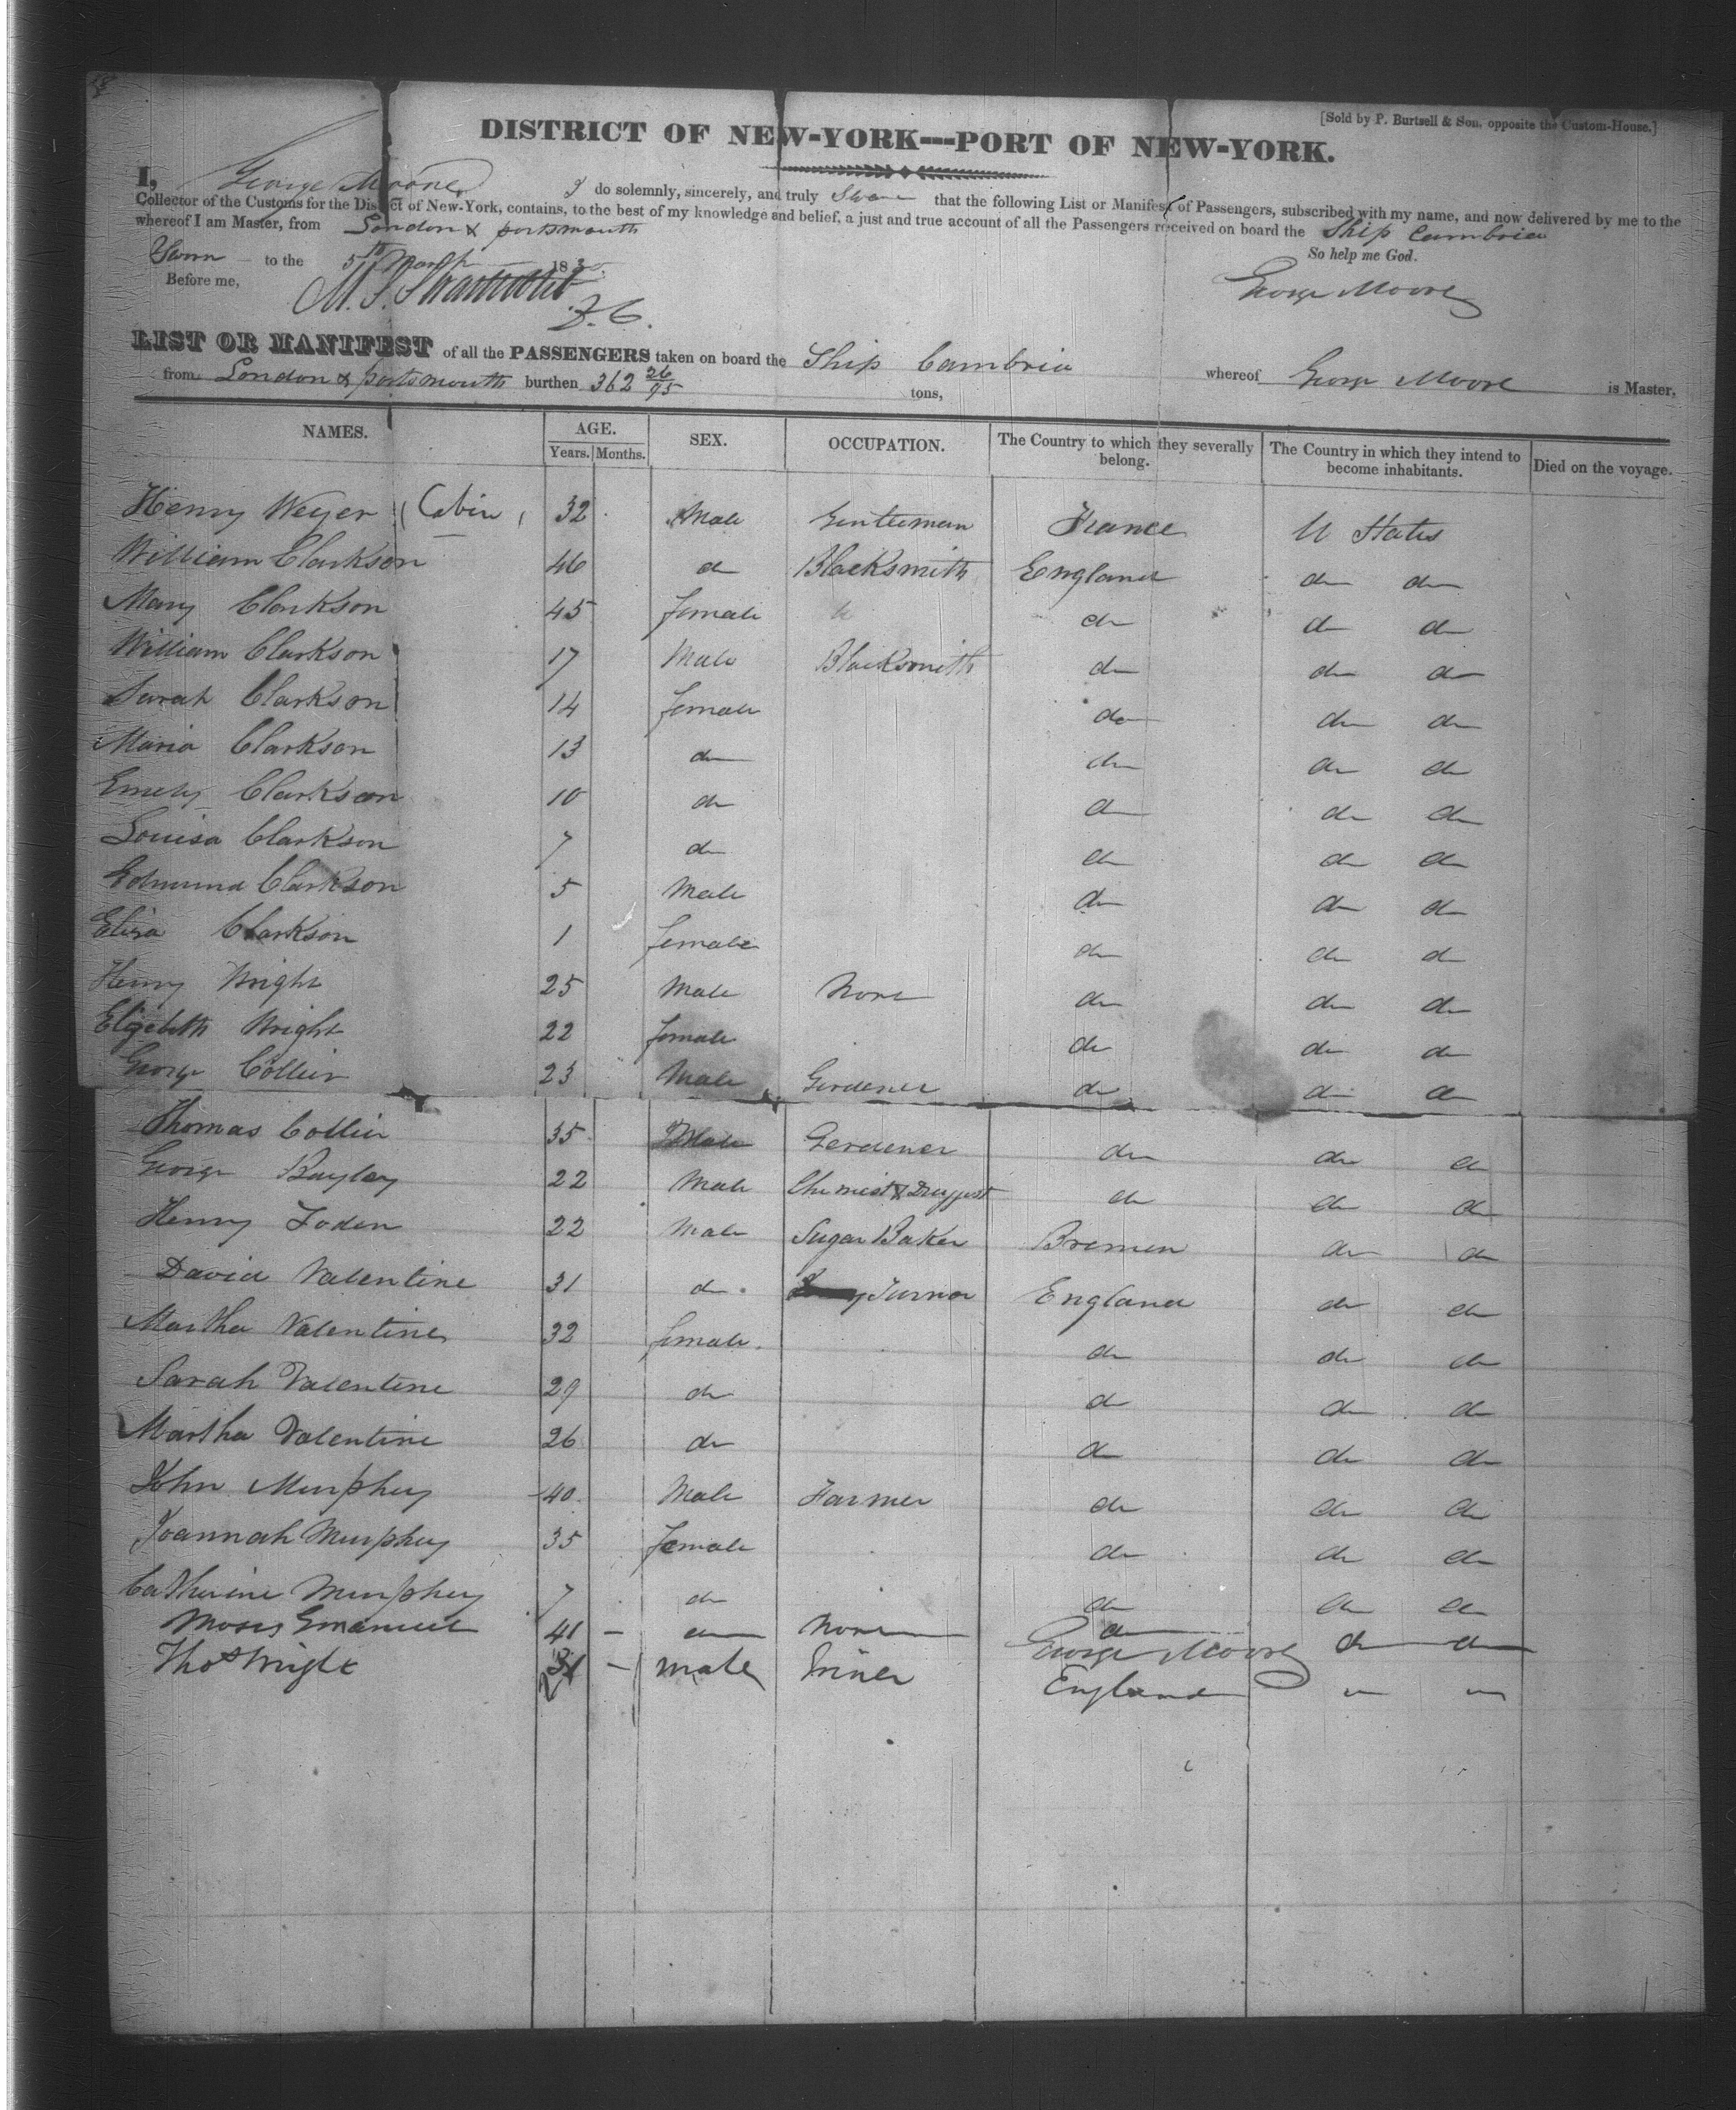 [Sold by P. Burtsell & Son, opposite the Custom-House.]
DISTRICT OF NEW-YORK---PORT OF NEW-YORK.
I, George Moore do solemnly, sincerely, and truly Swear that the following List or Manifest of Passengers, subscribed with my name, and now delivered by me to the
Collector of the Customs for the District of New-York, contains, to the best of my knowledge and belief, a just and true account of all the Passengers received on board the Ship Cambria
whereof I am Master, from London & portsmouth
So help me God.
Sworn to the 5th 1830.
Before me,
George Moore
D. C.
LIST OR MANIFEST of all the PASSENGERS taken on board the Ship Cambria whereof George Moore is Master,
from London & portsmouth burthen 362 26/95 tons,
NAMES. AGE. Years. Months. SEX. OCCUPATION. The Country to which they severally belong. The Country in which they intend to become inhabitants. Died on the voyage.
Henry Weyer (Cabin) 32 Male Gentleman France U States
William Clarkson 46 do Blacksmith England do do
Mary Clarkson 45 female do do do
William Clarkson 17 Male Blacksmith do do do
Sarah Clarkson 14 female do do do
Maria Clarkson 13 do do do do
Emely Clarkson 10 do do do do
Louisa Clarkson 7 do do do do
Edmund Clarkson 5 Male do do do
Eliza Clarkson 1 female do do do
Henry Wright 25 Male None do do do
Elizebeth Wright 22 female do do do
George Collier 23 Male Gerdener do do do
Thomas Collier 35 Male Gerdener do do do
George Bayley 22 Male Chemist & Druggest do do do
Henry Foden 22 Male Sugar Baker Bremen do do
David Valentine 31 do Turner England do do
Martha Valentine 32 female do do do
Sarah Valentine 29 do do do do
Martha Valentine 26 do do do do
John Murphey 40 Male Farmer do do do
Joannah Murphey 35 female do do do
Catherine Murphey 7 do do do do
Moses Emanuel 41 - do None do do do
George Moore
Thos Wright - male England